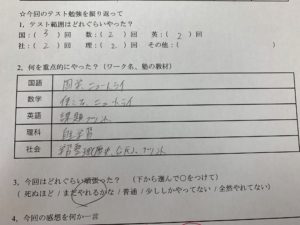 ☆今回のテスト勉強を振り返って
1、テスト範囲はどれぐらいやった?
国:( 3 )回 数:( 2 )回 英:( 2 )回
社:( 2 )回 理:( 2 )回 その他:( )
2、何を重点的にやった?(ワーク名、塾の教材)
国語
数学
英語 課題プリント
理科 自学習
社会
3、今回はどれぐらい頑張った? (下から選んで○をつけて)
(死ぬほど / まだやれるかな / 普通 / 少ししかやってない / 全然やれてない)
4、今回の感想を何か一言